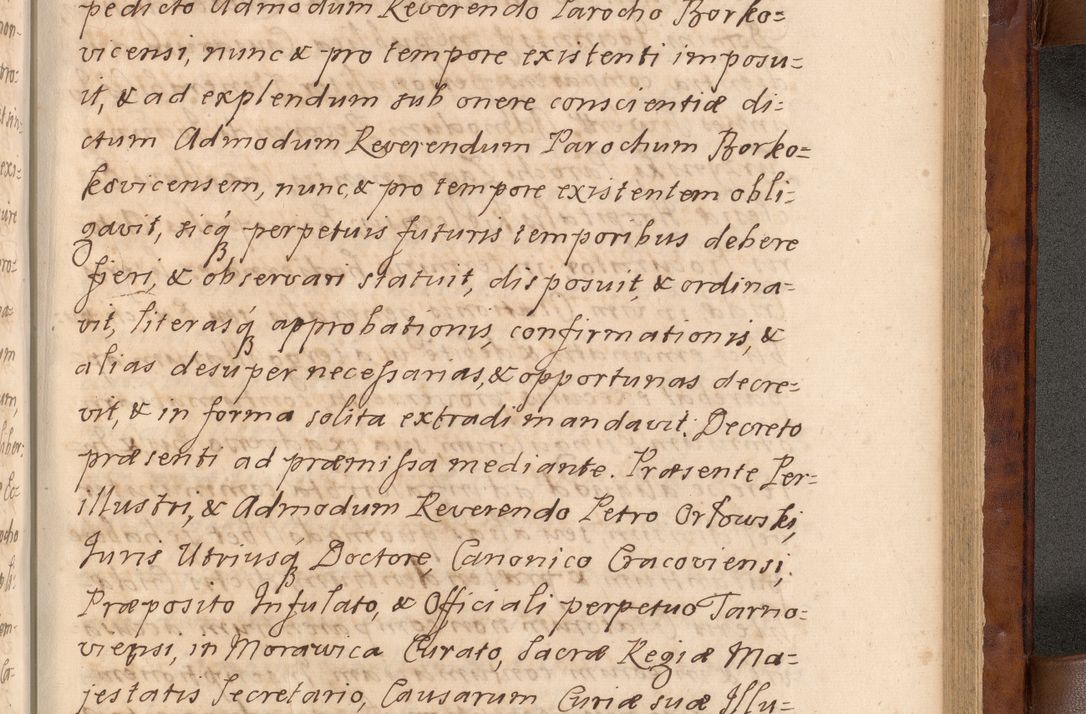 pedicto Admodum Reverendo Parocho Borko=
vicensi, nunc & pro tempore existenti imposu=
it, & ad explendum sub onere conscientiæ di=
ctum Admodum Reverendum Parochum Borko=
kovicensem, nunc & pro tempore existentem obli=
gavit, sicq́ perpetuis futuris temporibus debere
fieri, & observari statuit, disposuit, & ordina=
vit, literasq́ approbationis, confirmationis, &
alias desuper necessarias, & opportunas decre=
vit, & in forma solita extradi mandavit. Decreto
præsenti ad præmissa mediante. Præsente Per=
illustri, & Admodum Reverendo Petro Orłowski,
Juris Utriusq́ Doctore, Canonico Cracoviensi,
Præposito Infulato, & Officiali perpetuo Tarno=
viensi, in Morawica Curato, Sacræ Regiæ Ma=
jestatis Secretario, Causarum Curiæ suæ Illu=